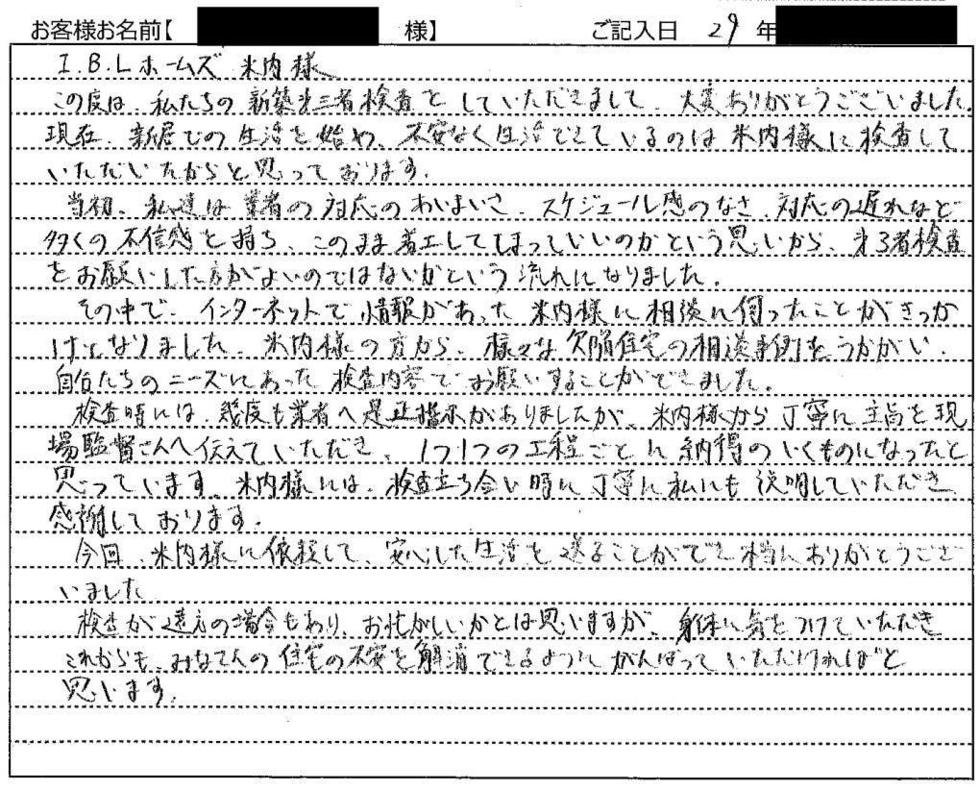 お客様お名前【 様】 ご記入日 29年
I.B.Lホームズ 米内様
この度は、私たちの新築第三者検査をしていただきまして、大変ありがとうございました
現在、新居での生活を始め、不安なく生活できているのは米内様に検査して
いただいたからと思っております。
当初、私達は業者の対応のあいまいさ、スケジュール感のなさ、対応の遅れなど
多くの不信感を持ち、このまま着工してしまっていいのかという思いから、第3者検査
をお願いした方がよいのではないかという流れになりました。
その中で、インターネットで情報があった米内様に相談に伺ったことがきっか
けとなりました。米内様の方から、様々な欠陥住宅の相談事例をうかがい、
自分たちのニーズにあった検査内容でお願いすることができました。
検査時には、幾度も業者へ是正指示がありましたが、米内様から丁寧に主旨を現
場監督さんへ伝えていただき、1つ1つの工程ごとに納得のいくものになったと
思っています。米内様には、検査立ち会い時に丁寧に私にも説明していただき
感謝しております。
今回、米内様に依頼して、安心した生活を送ることができ本当にありがとうござ
いました
検査が遠方の場合もあり、お忙がしいかとは思いますが、身体に気をつけていただき
これからも、みなさんの住宅の不安を解消できるようにがんばっていただければと
思います。